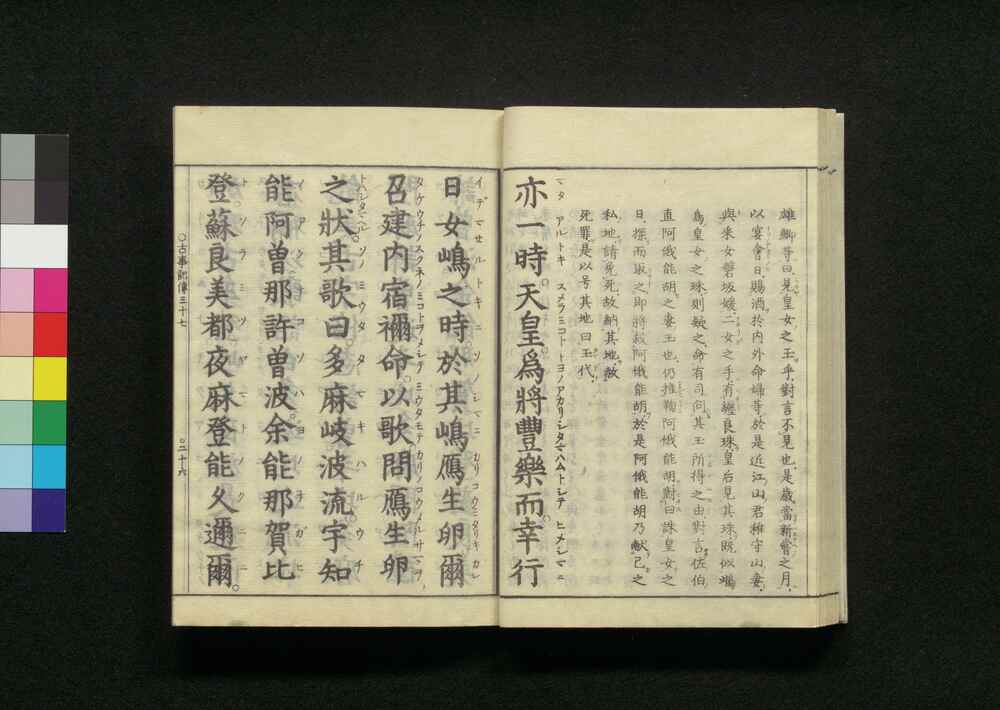 雄鯽等曰見皇女之玉乎對言不見也是歲當新嘗之月
以宴會日賜酒於內外命婦等於是近江山君稚守山妻
與采女磐坂媛二女之手有纒良珠皇后見其珠既似雌
鳥皇女之珠則疑之命有司問其玉所得之由對言佐伯
直阿俄能胡之妻王也仍推鞫阿俄能胡對曰誅皇女之
日探而取之即將殺阿俄能胡於是阿俄能胡乃獻己之
私地請免死故納其地赦
死罪是以号其地曰玉代
亦一時天皇爲將豐樂而幸行
日女嶋之時於其嶋鴈生卵爾
召建內宿禰命以歌問鴈生卵
之狀其歌曰多麻岐波流宇知
能阿曽那許曽波余能那賀比
登蘇良美都夜麻登能久邇爾
○古事記傳三十七 ○二十六